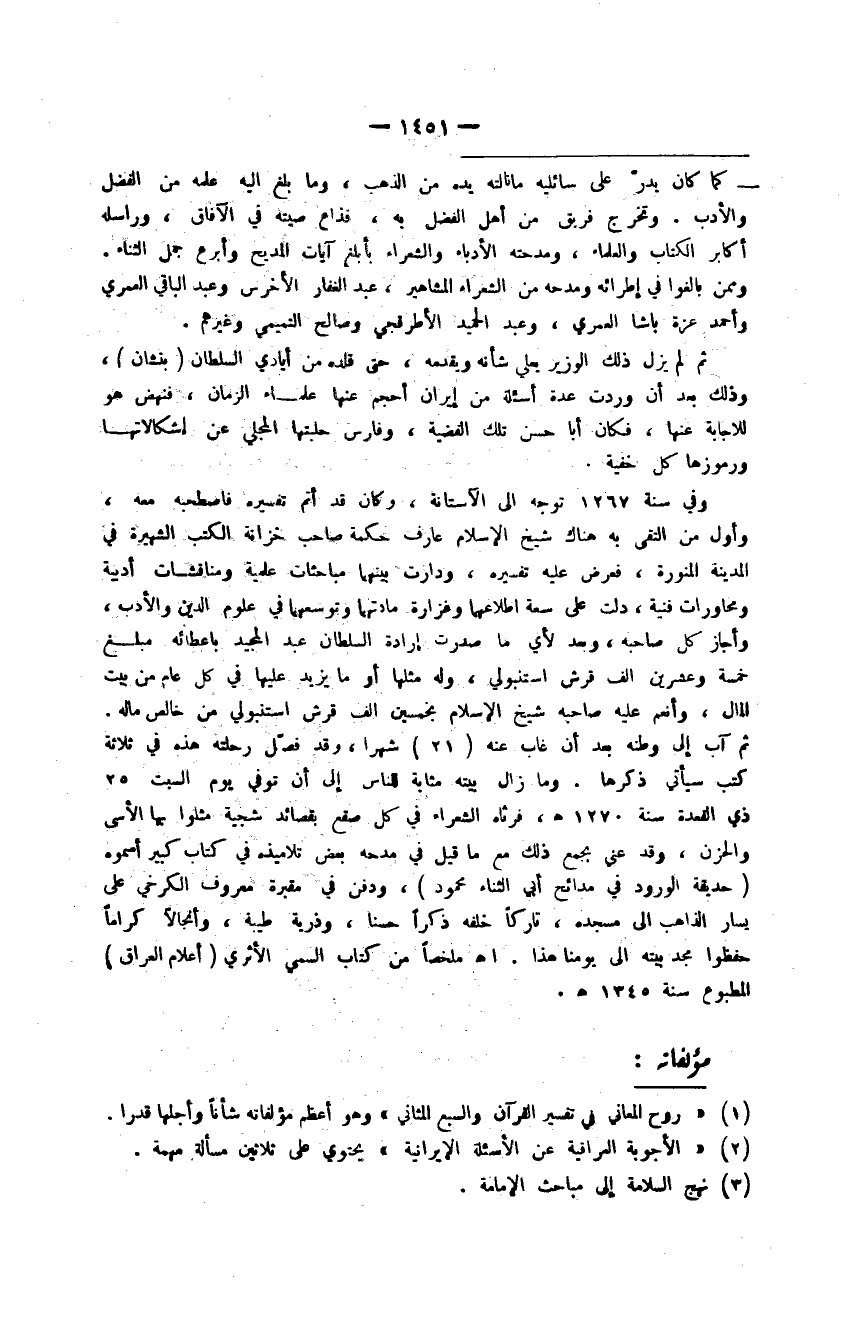 — ١٤٥١ —
— كما كان يدرّ على سائليه مانالته يده من الذهب ، وما بلغ اليه علمه من الفضل
والأدب . وتخرج فريق من أهل الفضل به ، فذاع صيته في الآفاق ، وراسله
أكابر الكتاب والعلماء ، ومدحته الأدباء والشعراء بأبلغ آيات المديح وأبرع جمل الثناء .
وممن بالغوا في إطرائه ومدحه من الشعراء المشاهير ، عبد الغفار الأخرس وعبد الباقي العمري
وأحمد عزة باشا العمري ، وعبد الحميد الأطرقجي وصالح التميمي وغيرهم .
ثم لم يزل ذلك الوزير يعلي شأنه ويقدمه ، حتى قلده من أيادي السلطان ( بنشان ) ،
وذلك بعد أن وردت عدة أسئلة من إيران أحجم عنها علمـــاء الزمان ، فنهض هو
للاجابة عنها ، فكان أبا حسن تلك القضية ، وفارس حلبتها المجلي عن إشكالاتهـــا
ورموزها كل خفية .
وفي سنة ١٢٦٧ توجه الى الآستانة ، وكان قد أتم تفسيره فاصطحبه معه ،
وأول من التقى به هناك شيخ الإسلام عارف حكمة صاحب خزانة الكتب الشهيرة في
المدينة المنورة ، فعرض عليه تفسيره ، ودارت بينهما مباحثات علمية ومناقشـات أدبية
ومحاورات فنية ، دلت على سعة اطلاعهما وغزارة مادتهما وتوسعهما في علوم الدين والأدب ،
وأجاز كل صاحبه ، وبعد لأي ما صدرت إرادة السلطان عبد المجيد باعطائه مبلـــغ
خمسة وعشرين الف قرش استنبولي ، وله مثلها أو ما يزيد عليها في كل عام من بيت
المال ، وأنعم عليه صاحبه شيخ الإسلام بخمسين الف قرش استنبولي من خالص ماله .
ثم آب إلى وطنه بعد أن غاب عنه ( ٢١ ) شهرا ، وقد فصّل رحلته هذه في ثلاثة
كتب سيأتي ذكرها . وما زال بيته مثابة للناس إلى أن توفي يوم السبت ٢٥
ذي القعدة سنة ١٢٧٠ ه ، فرثاه الشعراء في كل صقع بقصائد شجية مثلوا بها الأسى
والحزن ، وقد عني بجمع ذلك مع ما قيل في مدحه بعض تلاميذه في كتاب كبير أسموه
( حديقة الورود في مدائح أبي الثناء محمود ) ، ودفن في مقبرة معروف الكرخي على
يسار الذاهب الى مسجده ، تاركاً خلفه ذكراً حسنا ، وذرية طيبة ، وأنجالاً كراماً
حفظوا مجد بيته الى يومنا هذا . اه ملخصاً من كتاب السمي الأثري ( أعلام العراق )
المطبوع سنة ١٣٤٥ ه .
مؤلفاته :
(١) « روح المعاني في تفسير القرآن والسبع المثاني » وهو أعظم مؤلفاته شأناً وأجلها قدرا .
(٢) « الأجوبة العراقية عن الأسئلة الإيرانية » يحتوي على ثلاثين مسألة مهمة .
(٣) نهج السلامة إلى مباحث الإمامة .